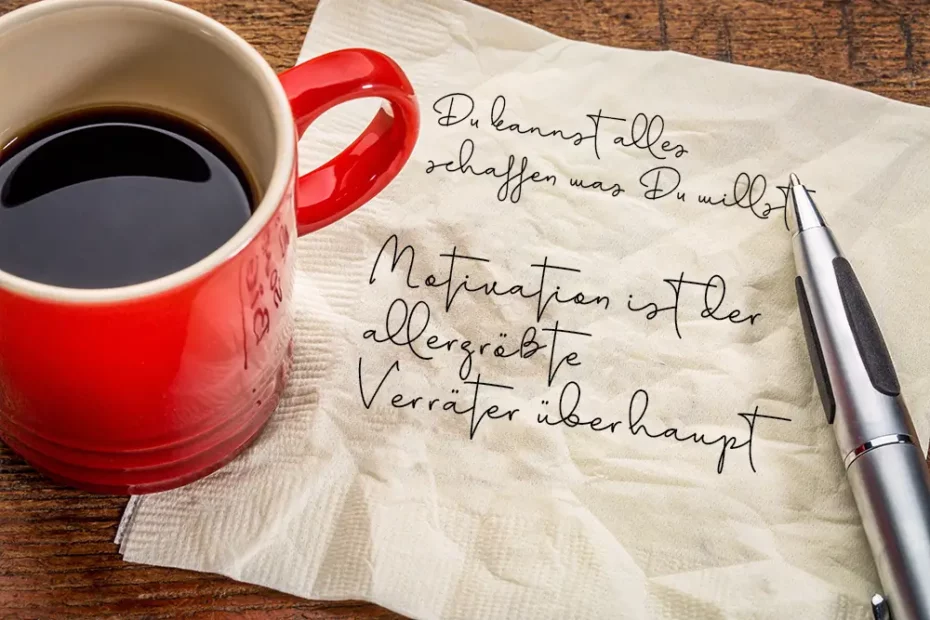 Du kannst alles
schaffen was Du willst
Motivation ist der
allergrößte
Verräter überhaupt